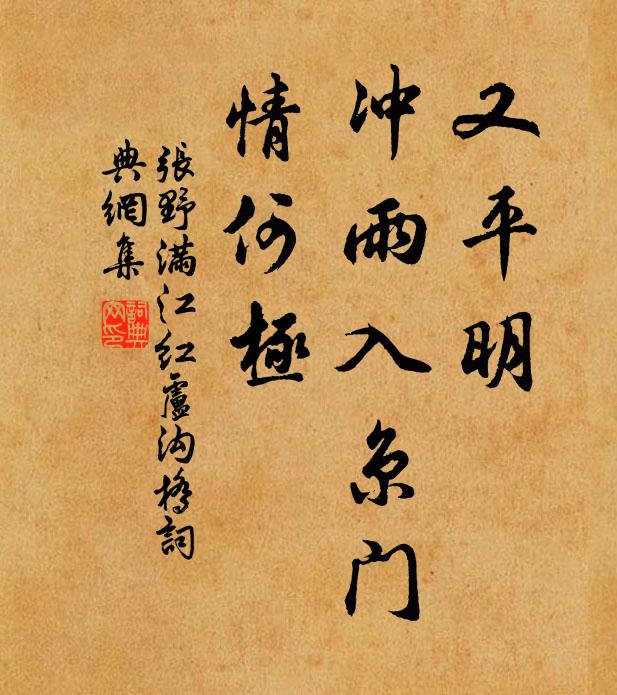 又平明
冲雨入京门
情何极
張野满江红盧沟橋詞
典網集
詞典
网印